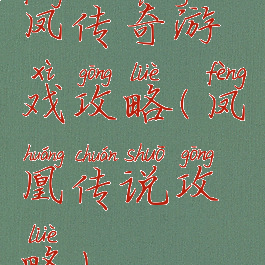 凤传奇游
xì gōng lüè fèng
戏攻略(凤
huáng chuán shuō gōng
凰传说攻
lüè
略)